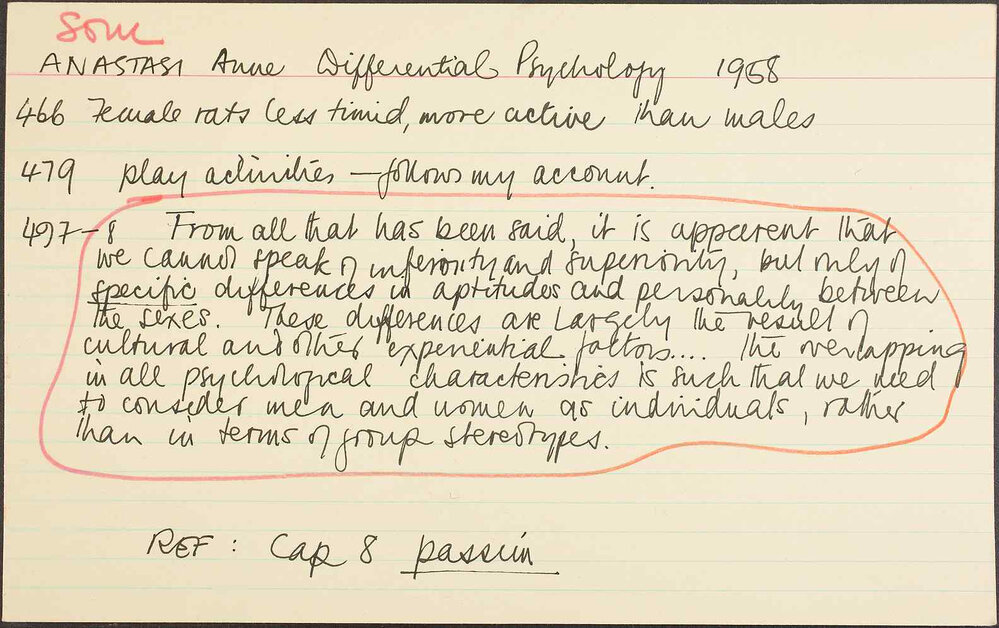 Soul
ANASTASI Anne Differential Psychology 1958
466 Female rats less timid, more active than males
479 play activities — follows my account.
497-8 From all that has been said, it is apparent that
we cannot speak of inferiority and superiority, but only of
specific differences in aptitudes and personality between
the sexes. These differences are largely the result of
cultural and other experiential factors.... The overlapping
in all psychological characteristics is such that we need
to consider men and women as individuals, rather
than in terms of group stereotypes.
REF: Cap 8 passim